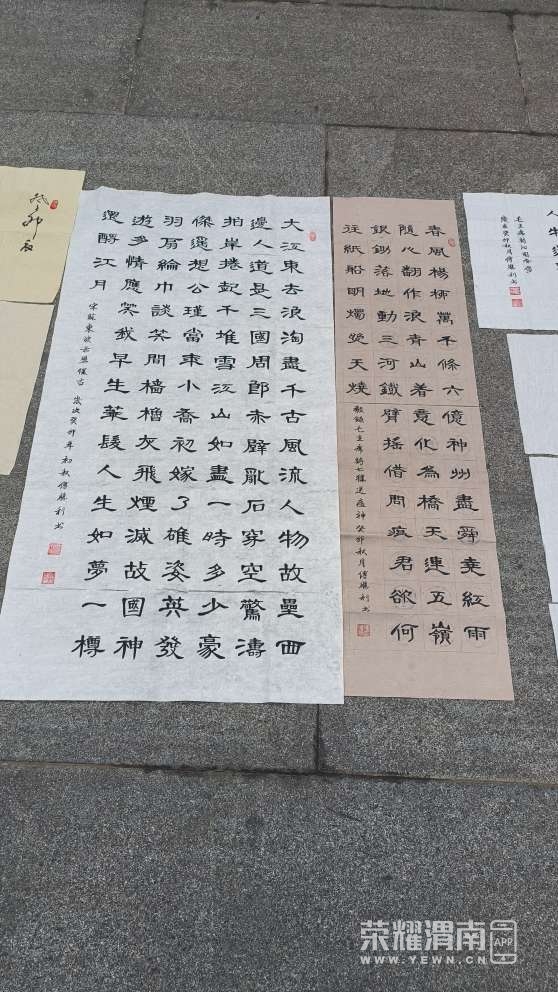 春風楊柳萬千條六億神州盡舜堯紅雨
隨心翻作浪青山着意化為橋天連五嶺
銀鋤落地動三河鐵臂搖借問瘟君欲何
往紙船明燭照天燒
敬錄毛主席詩七律送瘟神癸卯秋月傅勝利书
大江東去浪淘盡千古風流人物故壘西
邊人道是三國周郎赤壁亂石穿空驚濤
拍岸捲起千堆雪江山如畫一時多少豪
傑遙想公瑾當年小喬初嫁了雄姿英發
羽扇綸巾談笑間檣櫓灰飛煙滅故國神
遊多情應笑我早生華髮人生如夢一樽
還酹江月
宋蘇東坡赤壁懷古 歲次癸卯年初秋傅勝利书
荣耀渭南 APP
WWW.YEWN.CN